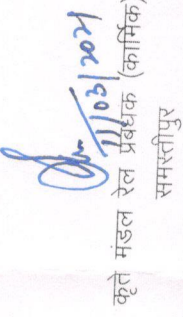 11/03/2021
कृते मंडल रेल प्रबंधक (कार्मिक)
समस्तीपुर